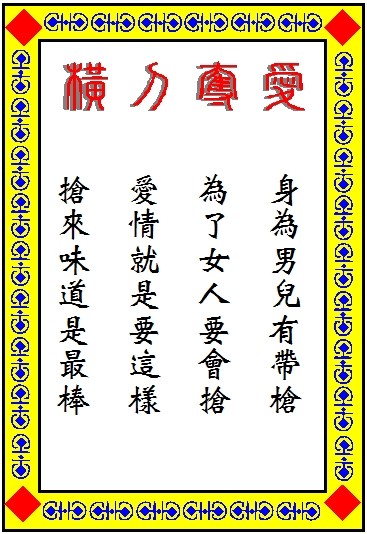 愛奪刀橫
身為男兒有帶槍
為了女人要會搶
愛情就是要這樣
搶來味道是最棒